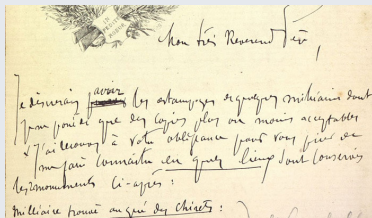 Mon très Reverend Père,
Je désirerais avoir les estampages de quelques milliaires dont
je ne possède que des copies plus ou moins acceptables
J'ai recours à votre obligeance pour vous prier de
me faire connaître en quels lieux sont conservés
les monuments ci-après :
Milliaire trouvé au gué des Chisets :